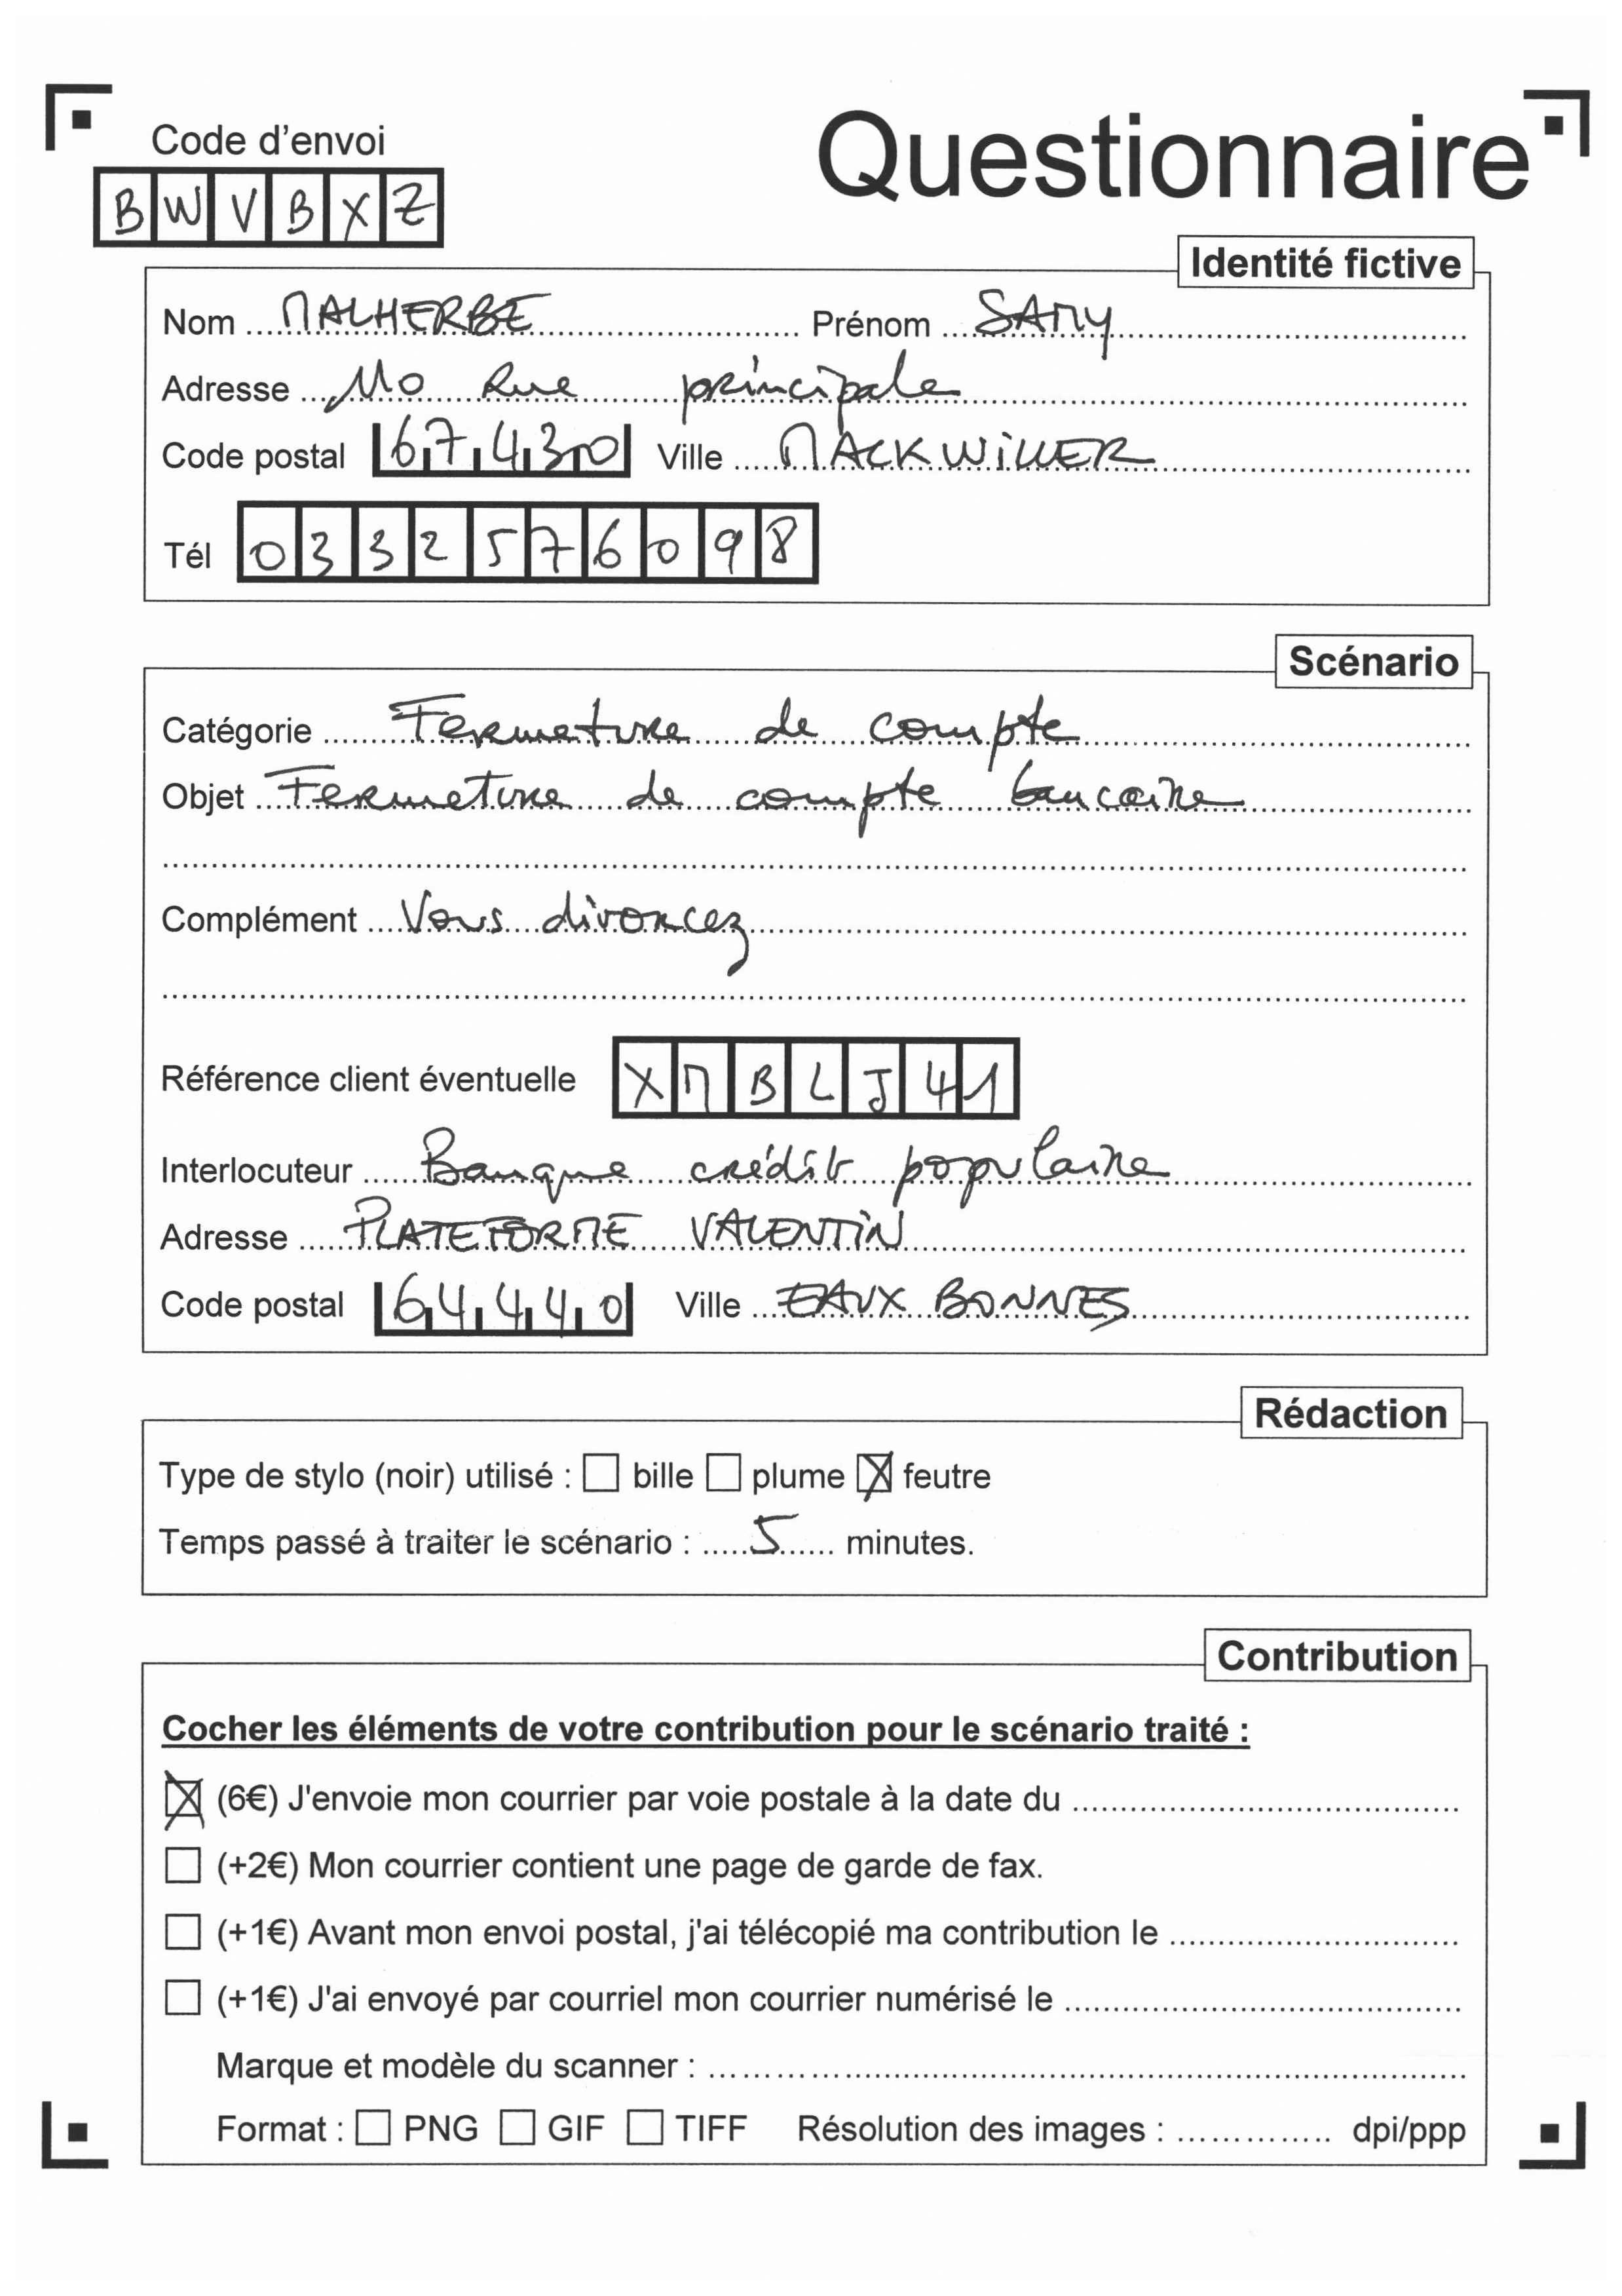 Code d'envoi
Questionnaire
BWVBXZ
Identité fictive
Nom MALHERBE Prénom SAMY
Adresse 110 Rue principale
Code postal 67430 Ville MACKWILLER
Tél 0332576098
Scénario
Catégorie Fermeture de compte
Objet Fermeture de compte bancaire
Complément Vous divorcez
Référence client éventuelle XMBLJ41
Interlocuteur Banque crédit populaire
Adresse PLATEFORME VALENTIN
Code postal 64440 Ville EAUX BONNES
Rédaction
Type de stylo (noir) utilisé : bille plume feutre
Temps passé à traiter le scénario : 5 minutes.
Contribution
Cocher les éléments de votre contribution pour le scénario traité :
(6€) J'envoie mon courrier par voie postale à la date du
(+2€) Mon courrier contient une page de garde de fax.
(+1€) Avant mon envoi postal, j'ai télécopié ma contribution le
(+1€) J'ai envoyé par courriel mon courrier numérisé le
Marque et modèle du scanner :
Format : PNG GIF TIFF Résolution des images : dpi/ppp